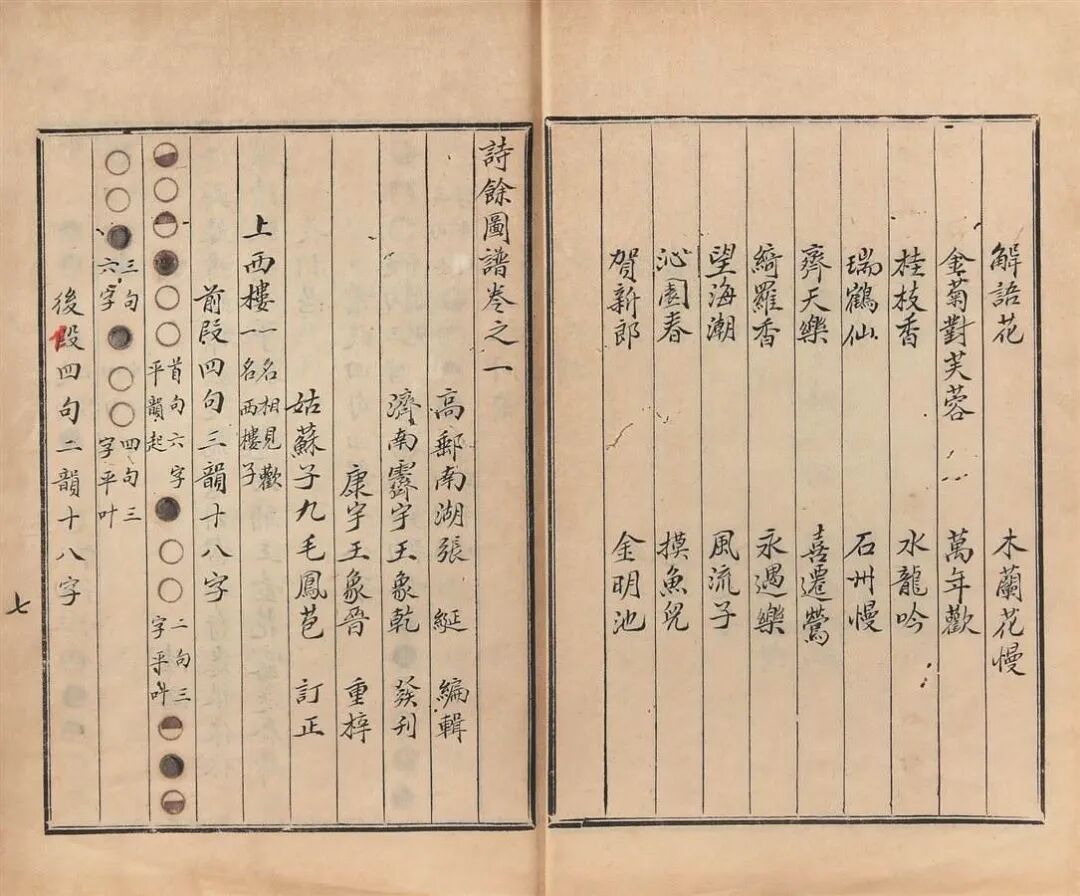 解語花 木蘭花慢
金菊對芙蓉 萬年歡
桂枝香 水龍吟
瑞鶴仙 石州慢
齊天樂 喜遷鶯
綺羅香 永遇樂
望海潮 風流子
沁園春 摸魚兒
賀新郎 金明池
詩餘圖譜卷之一
高郵南湖張 綖 編輯
濟南霽宇王象乾 發刊
康宇王象晉 重梓
姑蘇子九毛鳳苞 訂正
上西樓 一名相見歡 一名西樓子
前段四句三韻十八字
◒○◓●○○ 首句六字平韻起 ●○○ 二句三字平叶 ◓●◒
○○● 三句六字 ●○○ 四句三字平叶
後段四句二韻十八字
七